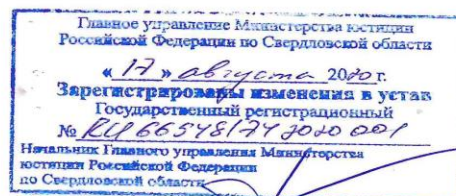 Главное управление Министерства юстиции
Российской Федерации по Свердловской области
« 17 » августа 2020 г.
Зарегистрированы изменения в устав
Государственный регистрационный
№ RU665481742020001
Начальник Главного управления Министерства
юстиции Российской Федерации
по Свердловской области